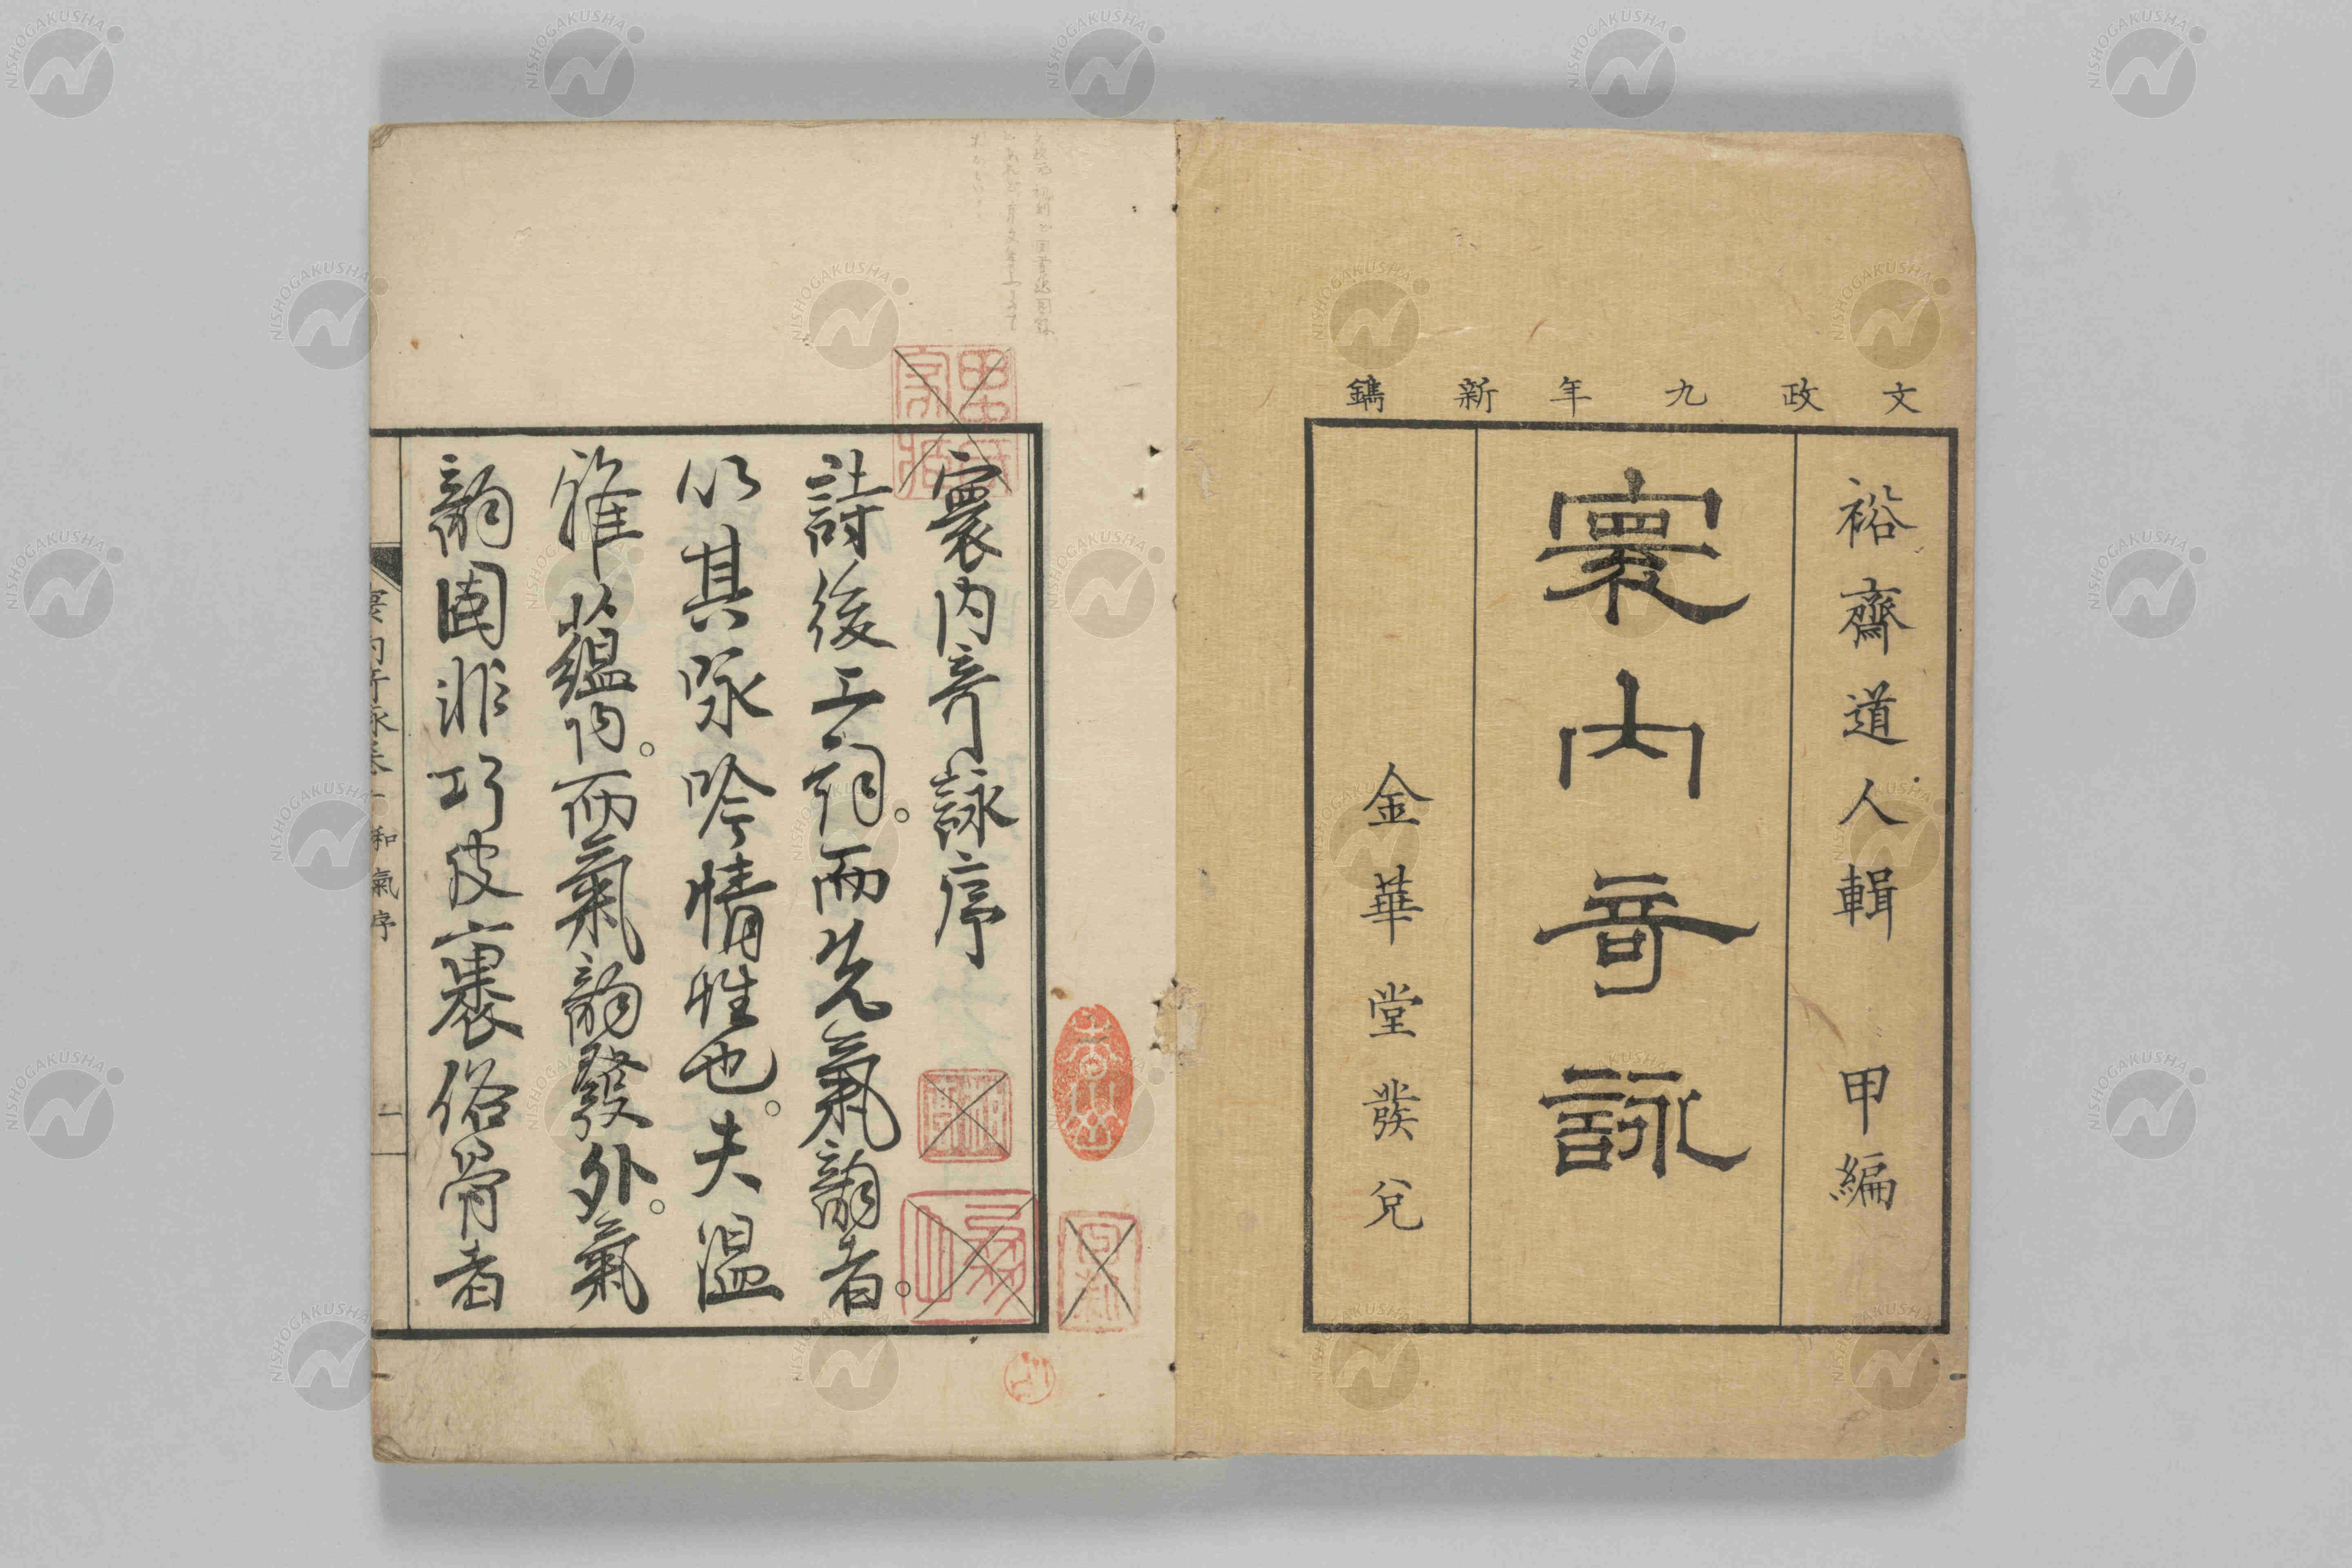 文政九年新鐫
裕齋道人輯 甲編
寰内奇詠
金華堂發兌
寰内奇詠序
詩後工詞。而先氣韵者。
以其咏吟情性也。夫温
雅蘊内。而氣韵發外。氣
韵固非巧皮裹俗骨者
寰内奇詠卷一 和氣序 一
NISHOGAKUSHA